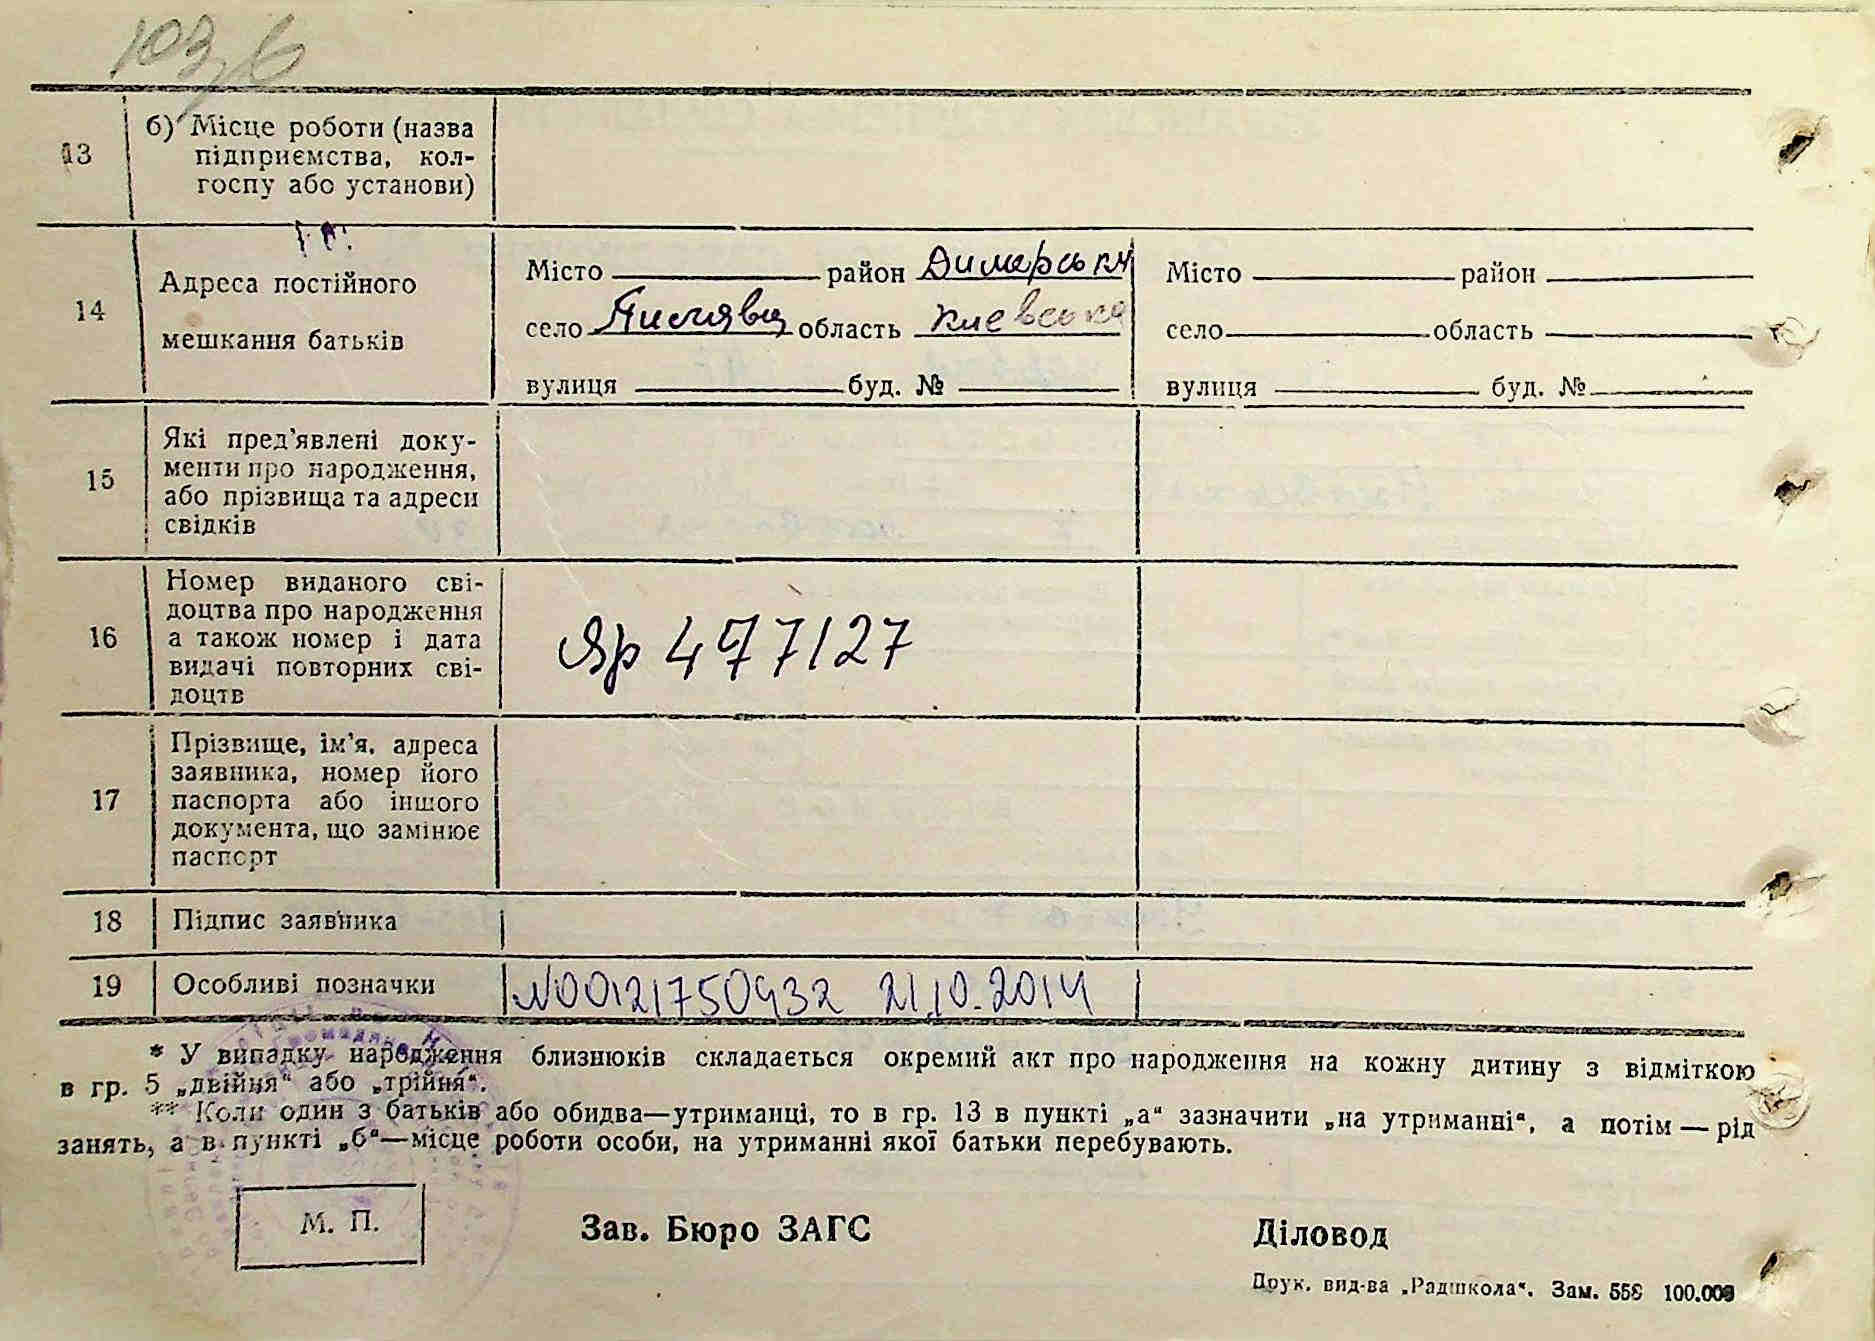 103
13
б) Місце роботи (назва
підприємства, кол-
госпу або установи)
14
Адреса постійного
мешкання батьків
Місто район Димерськ
село область киевська
вулиця буд. №
Місто район
село область
вулиця буд. №
15
Які пред'явлені доку-
менти про народження,
або прізвища та адреси
свідків
16
Номер виданого сві-
доцтва про народження
а також номер і дата
видачі повторних сві-
доцтв
Яр 477127
17
Прізвище, ім'я, адреса
заявника, номер його
паспорта або іншого
документа, що замінює
паспорт
18 Підпис заявника
19 Особливі позначки N00121750432 21.10.2014
* У випадку народження близнюків складається окремий акт про народження на кожну дитину з відміткою
в гр. 5 „двійня“ або „трійня“.
** Коли один з батьків або обидва—утриманці, то в гр. 13 в пункті „а“ зазначити „на утриманні“, а потім — рід
занять, а в пункті „б“—місце роботи особи, на утриманні якої батьки перебувають.
М. П.
Зав. Бюро ЗАГС
Діловод
Друк. вид-ва „Радшкола“. Зам. 559 100.000